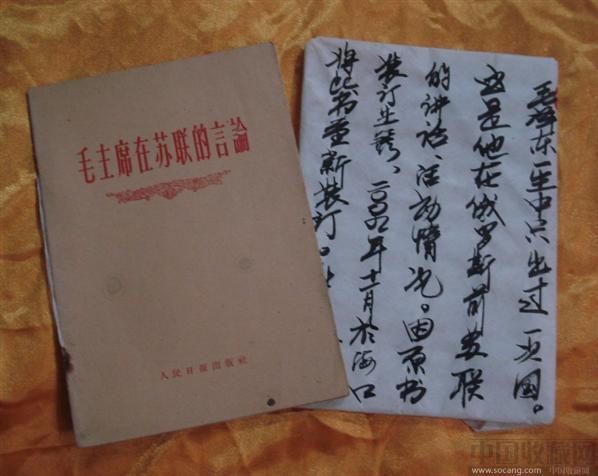 毛主席在苏联的言論
人民日報出版社
毛泽东一生中只出过一次国。
这是他在俄罗斯前苏联
的讲话、活动情况。因原书
装订生锈、年十一月於海口
将此书重新装订。
中国收藏网
www.socang.com 中国收藏网